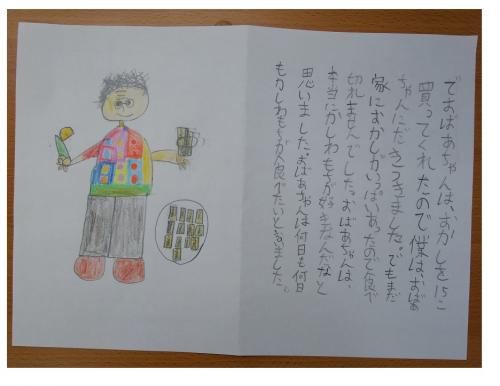 でおばあちゃんは、おかしを15こ
買ってくれたので僕は、おばあ
ちゃんにだきつきました。でもまだ
家におかしがいっぱいあったので食べ
切れませんでした。おばあちゃんは、
本当にかしわもちが好きなんだなと
思いました。おばあちゃんは何日も何日
もかしわもちが食べたいと言いました。